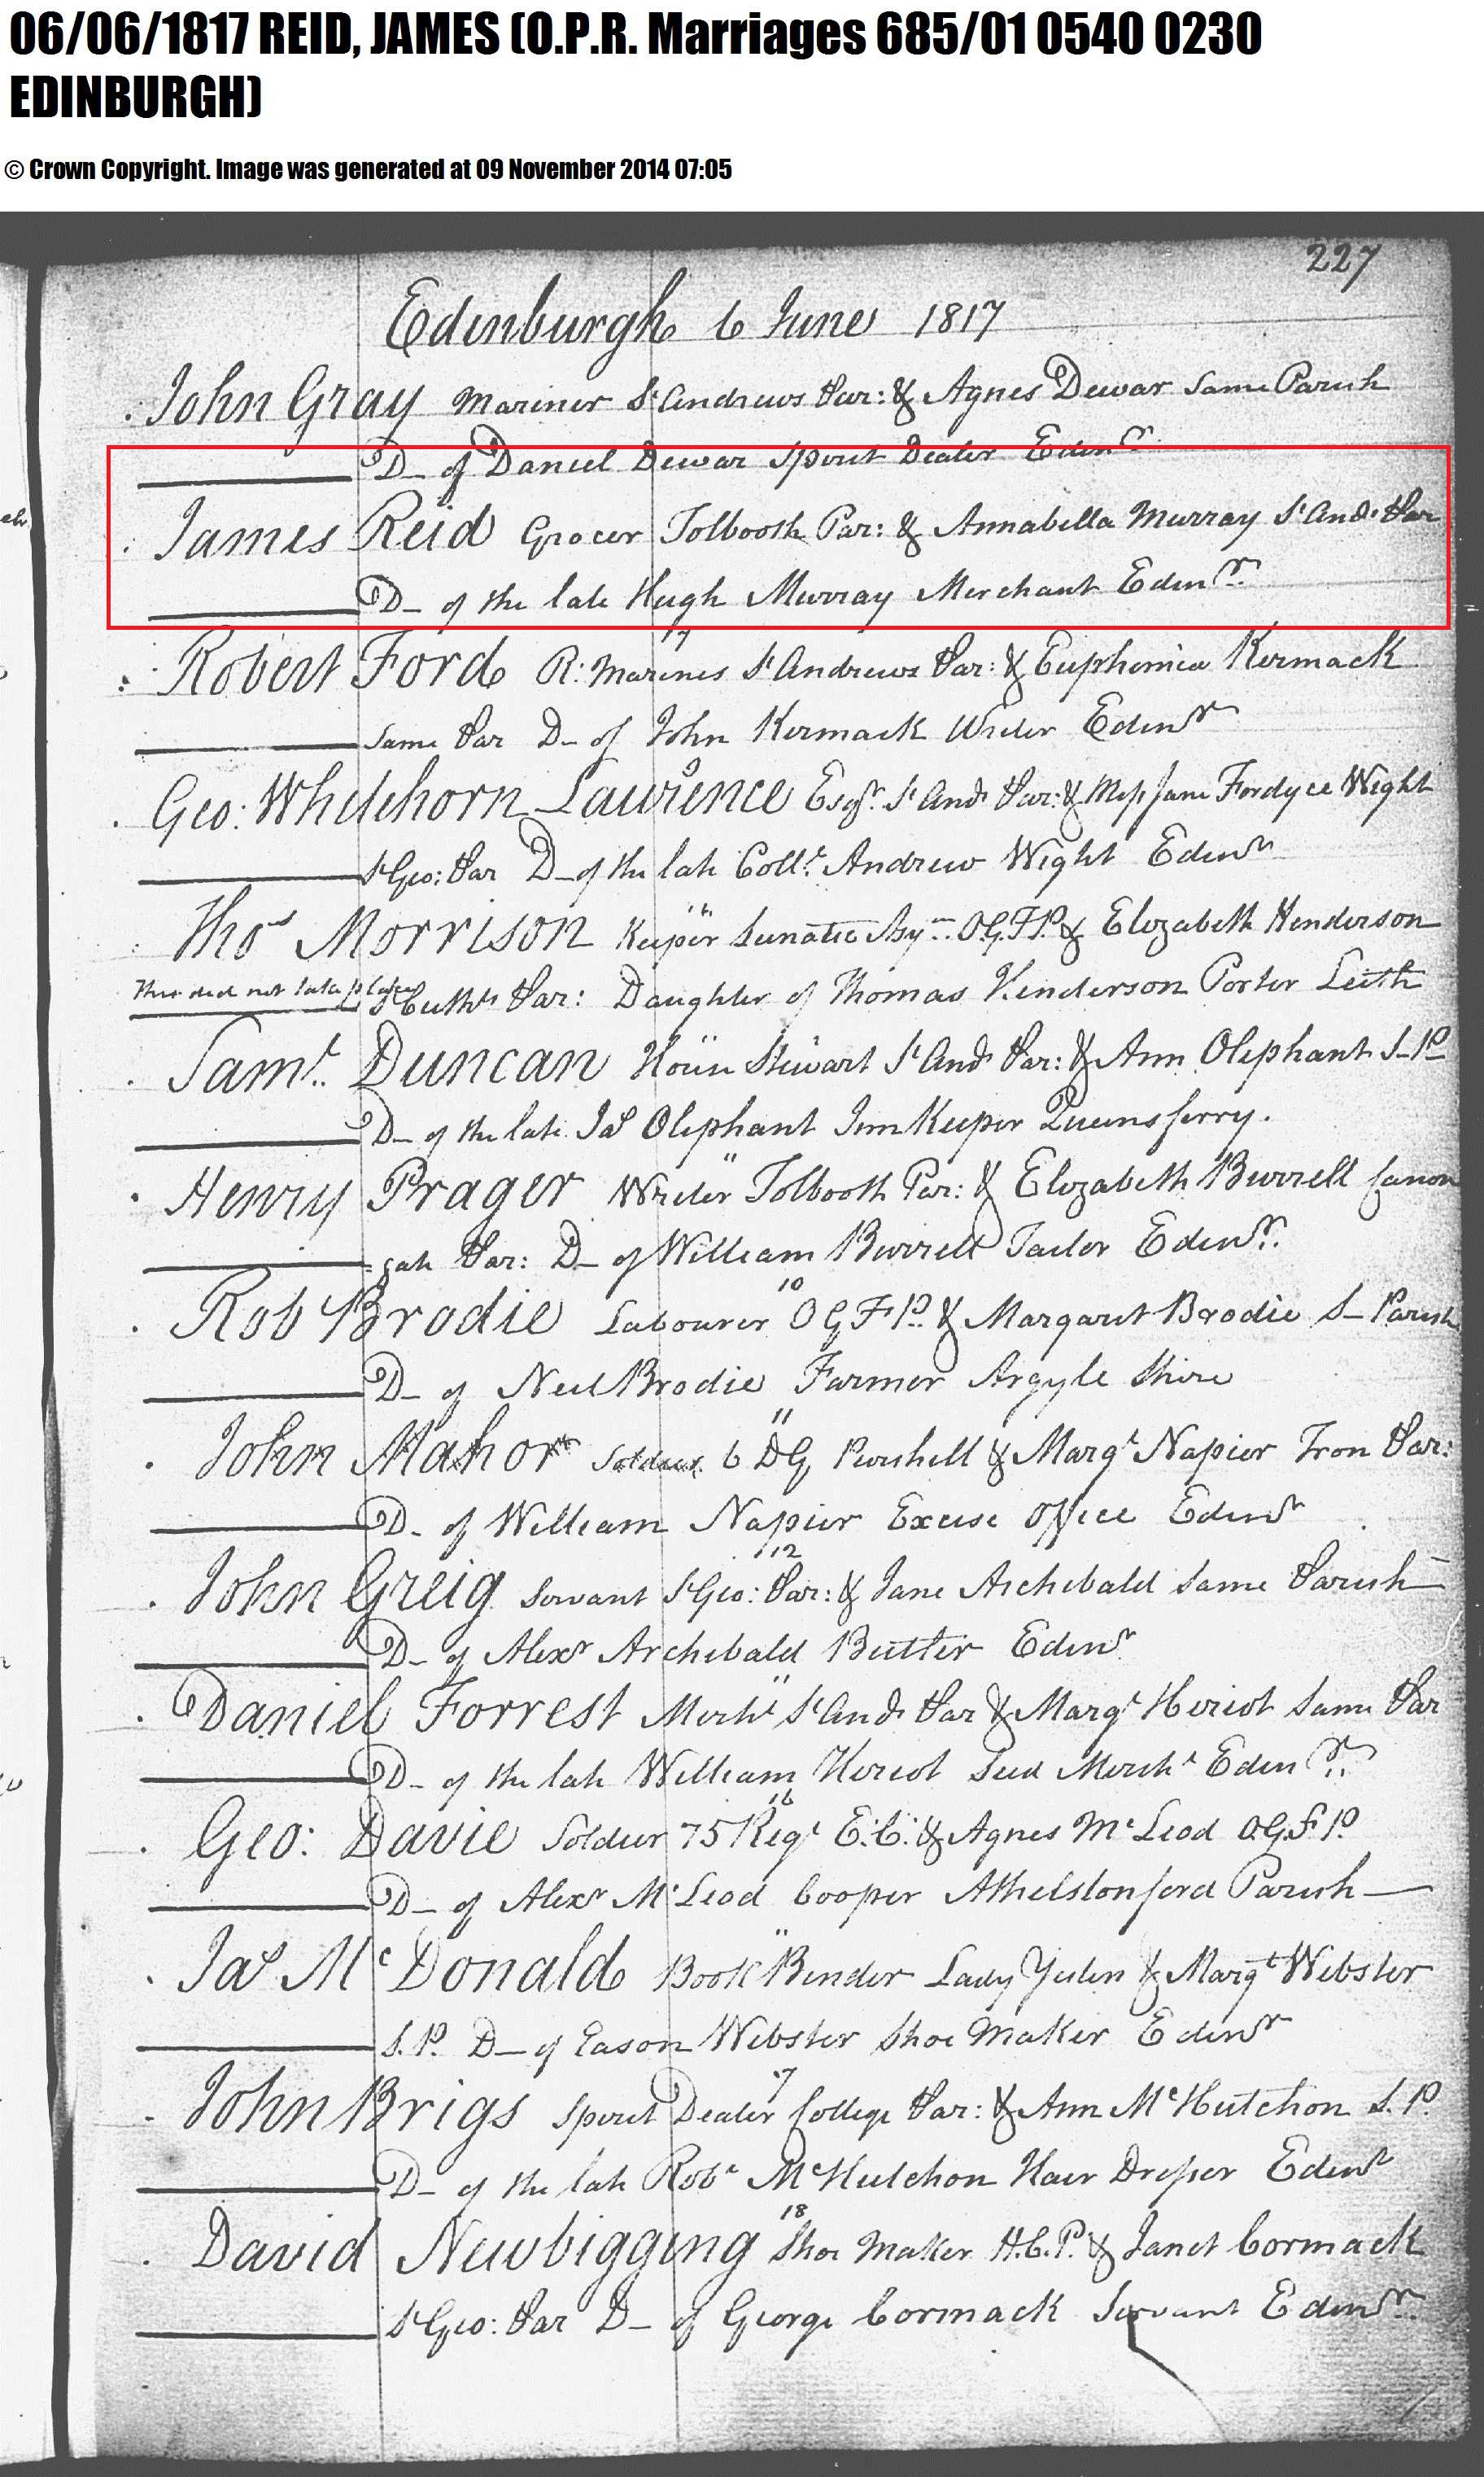 06/06/1817 REID, JAMES (O.P.R. Marriages 685/01 0540 0230
EDINBURGH)
© Crown Copyright. Image was generated at 09 November 2014 07:05
227
Edinburgh 6 June 1817
John Gray Mariner St Andrews Par: & Agnes Dewar Same Parish
D- of Daniel Dewar Spirit Dealer Edinr
James Reid Grocer Tolbooth Par: & Annabella Murray St And: Par
D- of the late Hugh Murray Merchant Edinr
7
Robert Ford R: Marines St Andrews Par: & Euphemia Kermack
Same Par D- of John Kermack Writer Edinr
9
Geo: Whitehorn Lawrence Esqr St And: Par: & Miss Jane Fordyce Wight
St Geo: Par D- of the late Collr Andrew Wight Edinr
Thos Morrison Keeper Lunatic Asy: O.G.F.P. & Elizabeth Henderson
This did not take place
St Cuthts Par: Daughter of Thomas Henderson Porter Leith
Saml Duncan House Stewart St And: Par: & Ann Oliphant S-P
D- of the late Jas Oliphant Inn Keeper Queensferry.
Henry Prager Writer Tolbooth Par: & Elizabeth Burrell Canon
=gate Par: D- of William Burrell Tailor Edinr
10
Rob Brodie Labourer O G F P. & Margaret Brodie S- Parish
D- of Neil Brodie Farmer Argyle Shire
11
John Mahor Soldier 6 DG Piershill & Margt Napier Tron Par:
D- of William Napier Excise Office Edinr
12
John Greig Servant St Geo: Par: & Jane Archibald Same Parish
D- of Alexr Archibald Butler Edinr
Daniel Forrest Mercht St And: Par & Margt Heriot Same Par
D- of the late William Heriot Seed Mercht Edinr
16
Geo: Davie Soldier 75 Regt E.C. & Agnes McLeod O.G.F P.
D- of Alexr McLeod Cooper Athelstonford Parish
Jas McDonald Book Binder Lady Yesters & Margt Webster
S.P. D- of Eason Webster Shoe Maker Edinr
17
John Brigs Spirit Dealer College Par: & Ann McHutchon S.P.
D- of the late Robt McHutchon Hair Dresser Edinr
18
David Newbigging Shoe Maker H.C.P. & Janet Cormack
St Geo: Par D- of George Cormack Servant Edinr